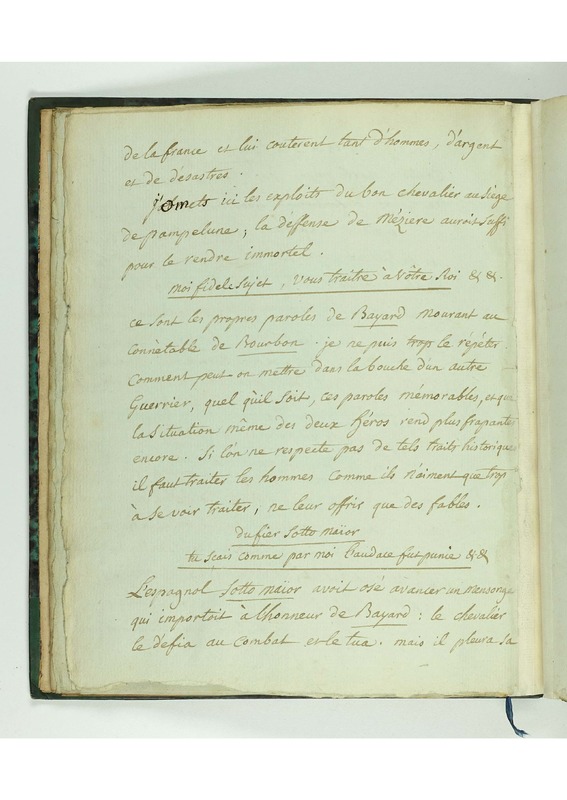 de la france et lui couterent tant d'hommes, d'argent
et de désastres.
j'omets ici les exploits du bon chevalier au siege
de pampelune; la deffense de Méziere auroit suffi
pour le rendre immortel.
moi fidele sujet, vous traitre à Vôtre Roi &&.
ce sont les propres paroles de Bayard mourant au
connètable de Bourbon. je ne puis trop le répéter.
Comment peut-on mettre dans la bouche d'un autre
Guerrier, quel qu'il soit, ces paroles mémorables, et que
la Situation même des deux héros rend plus frapantes
encore. Si l'on ne respecte pas de tels traits historiques
il faut traiter les hommes comme ils n'aiment que trop
à se voir traiter, ne leur offrir que des fables.
du fier Sotto maïor
tu sçais comme par moi l'audace fut punie &&
L'espagnol Sotto maïor avoit osé avancer un mensonge
qui importoit à l'honneur de Bayard: le chevalier
le défia au combat et le tua. mais il pleura sa